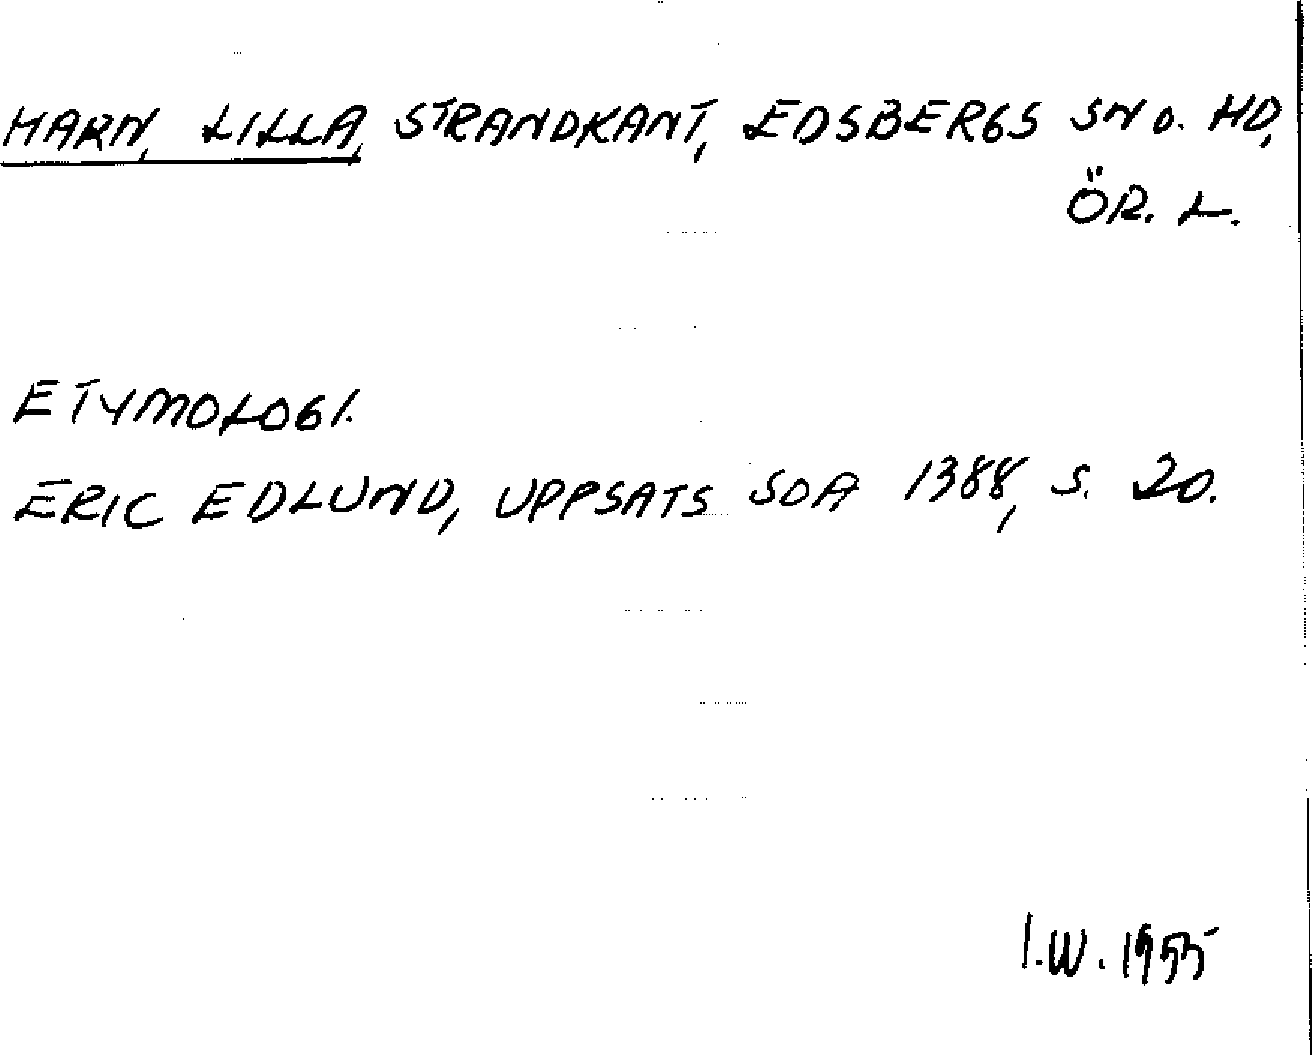 HARN, LILLA, STRANDKANT, EDSBERGS SN O. HD,
ÖR. L.
ETYMOLOGI.
ERIC EDLUND, UPPSATS SOA 1388, S. 20.
I.W. 1955